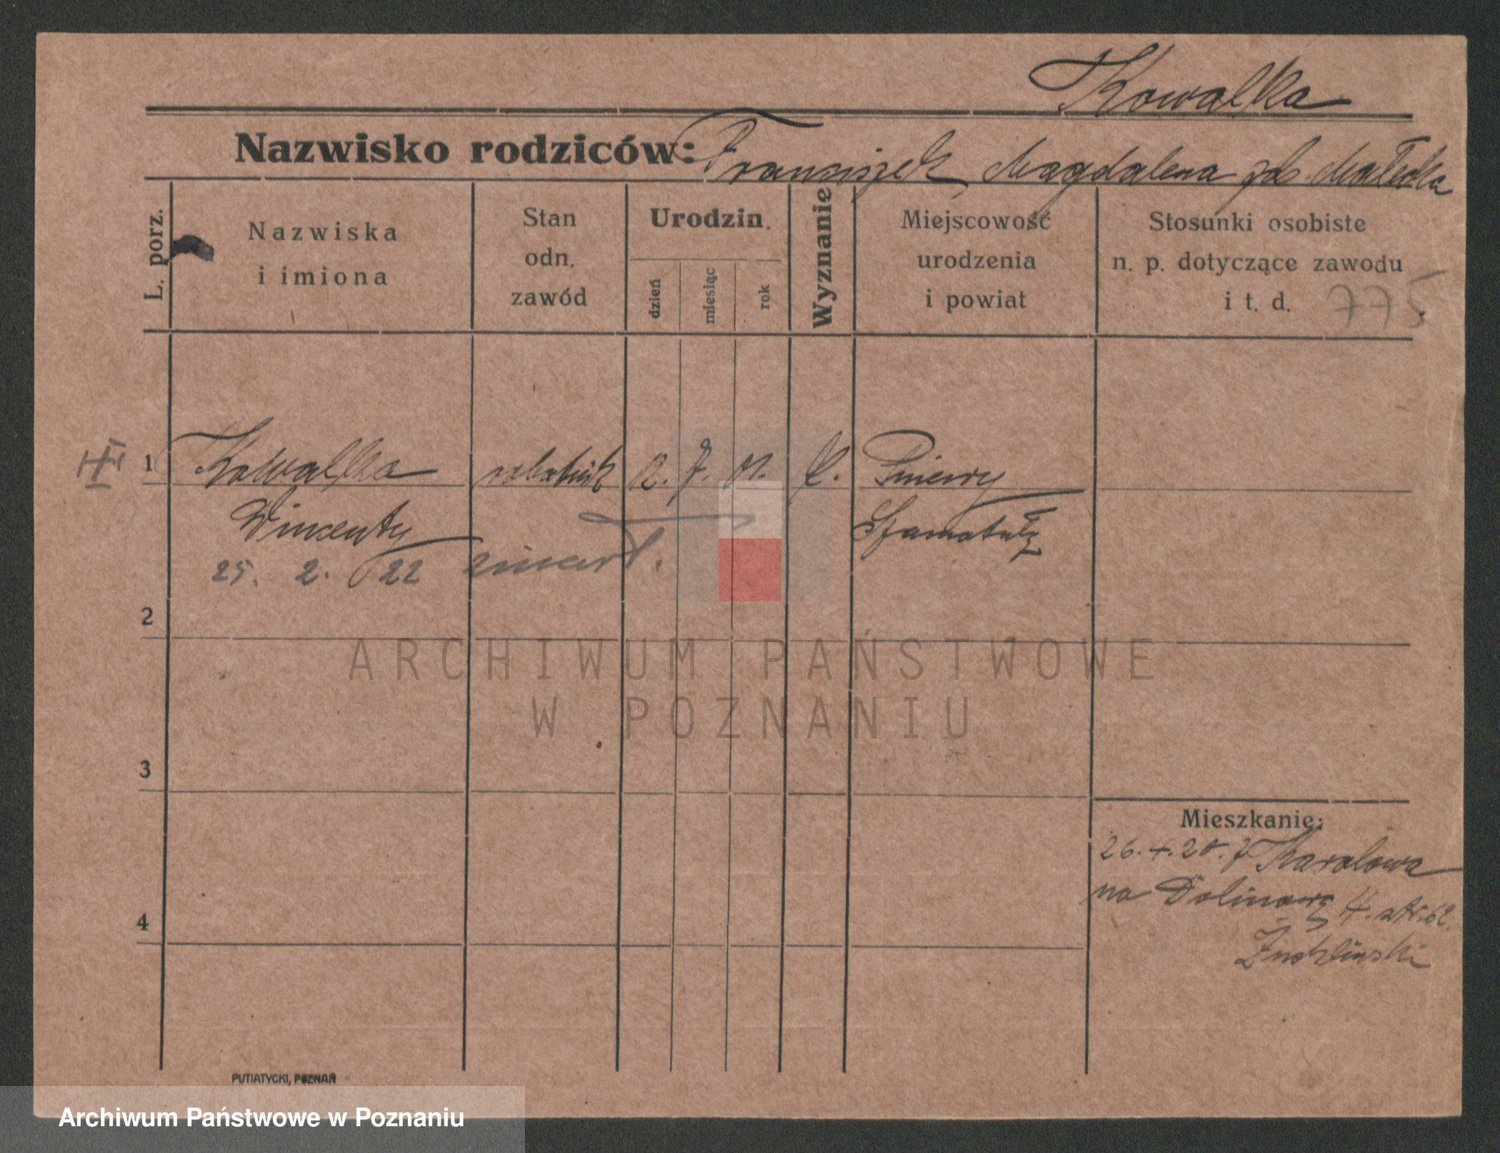 Kowalka
Nazwisko rodziców: Franciszek, Magdalena zd. Małecka
L. porz.
Nazwiska
i imiona
Stan
odn.
zawód
Urodzin.
dzień
miesiąc
rok
Wyznanie
Miejscowość
urodzenia
i powiat
Stosunki osobiste
n. p. dotyczące zawodu
i t. d. 775
1 Kowalka robotnik 12. 7. 01. k. Pniewy
Wincenty Szamotuły
25. 2. 22 zmarł.
2
ARCHIWUM PAŃSTWOWE
W POZNANIU
3
Mieszkanie:
26.4.20. z Karolewa
na Dolina 4. str. 62.
4
PUTIATYCKI, POZNAŃ
Archiwum Państwowe w Poznaniu